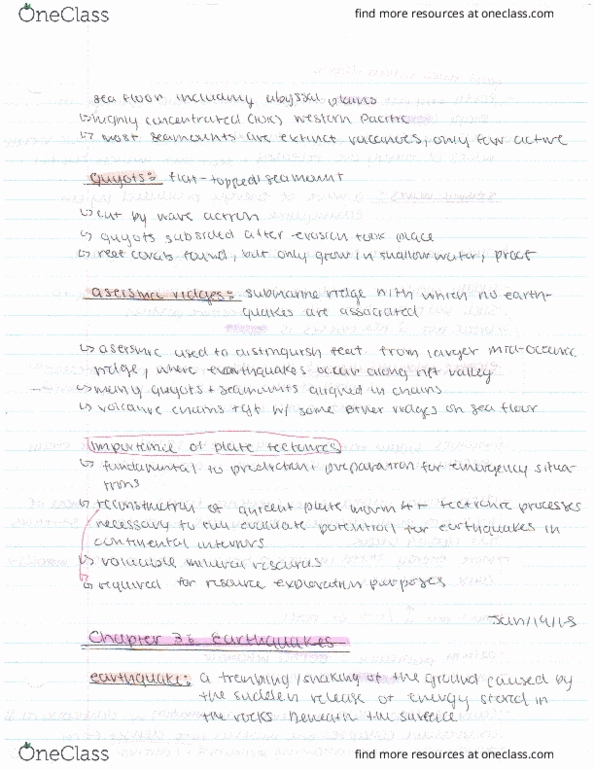 OneClass
find more resources at oneclass.com
sea floor including abyssal plains
↳ highly concentrated (10K) western Pacific
↳ most seamounts are extinct vacanoes, only few active
guyots: flat-topped seamount
↳ cut by wave action
↳ guyots subsided after erosion took place
↳ reef corals found, but only grow in shallow water, proof
aseismic ridges: submarine ridge with which no earth-
quakes are associated
↳ aseismic used to distinguish feat. from larger mid-oceanic
ridge, where earthquakes occur along rift valley
↳ many guyots + seamounts aligned in chains
↳ volcanic chains tgt w/ some other ridges on sea floor
importance of plate tectonics
↳ fundamental to prediction + preparation for emergency situa-
tions
↳ reconstruction of ancient plate mvmnt + tectonic processes
necessary to fully evaluate potential for earthquakes in
continental interiors
↳ valuable mineral resources
↳ required for resource exploration purposes
Jan/19/18
Chapter 3: earthquakes
earthquake: a trembling/shaking of the ground caused by
the sudden release of energy stored in
the rocks beneath the surface
OneClass
find more resources at oneclass.com